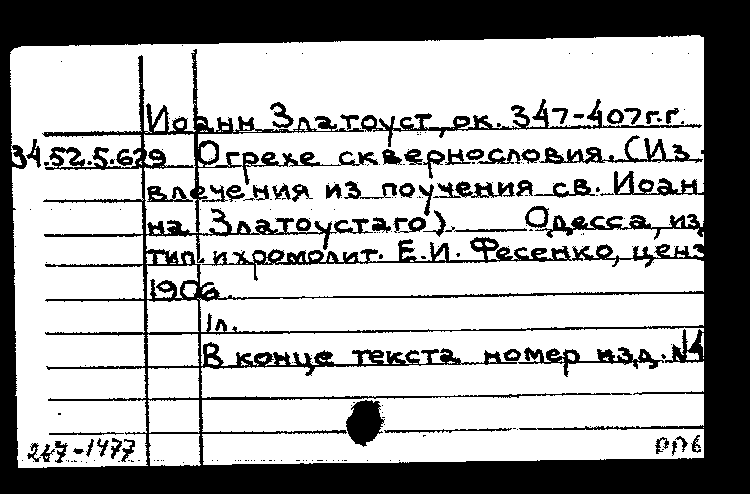 Иоанн Златоуст, ок. 347-407г.г.
34.52.5.629 О грехе сквернословия. (Из-
влечения из поучения св. Иоан
на Златоустаго). Одесса, из
тип. и хромолит. Е.И. Фесенко, ценз
1906.
1л.
В конце текста номер изд. №4
267-1477 РПБ